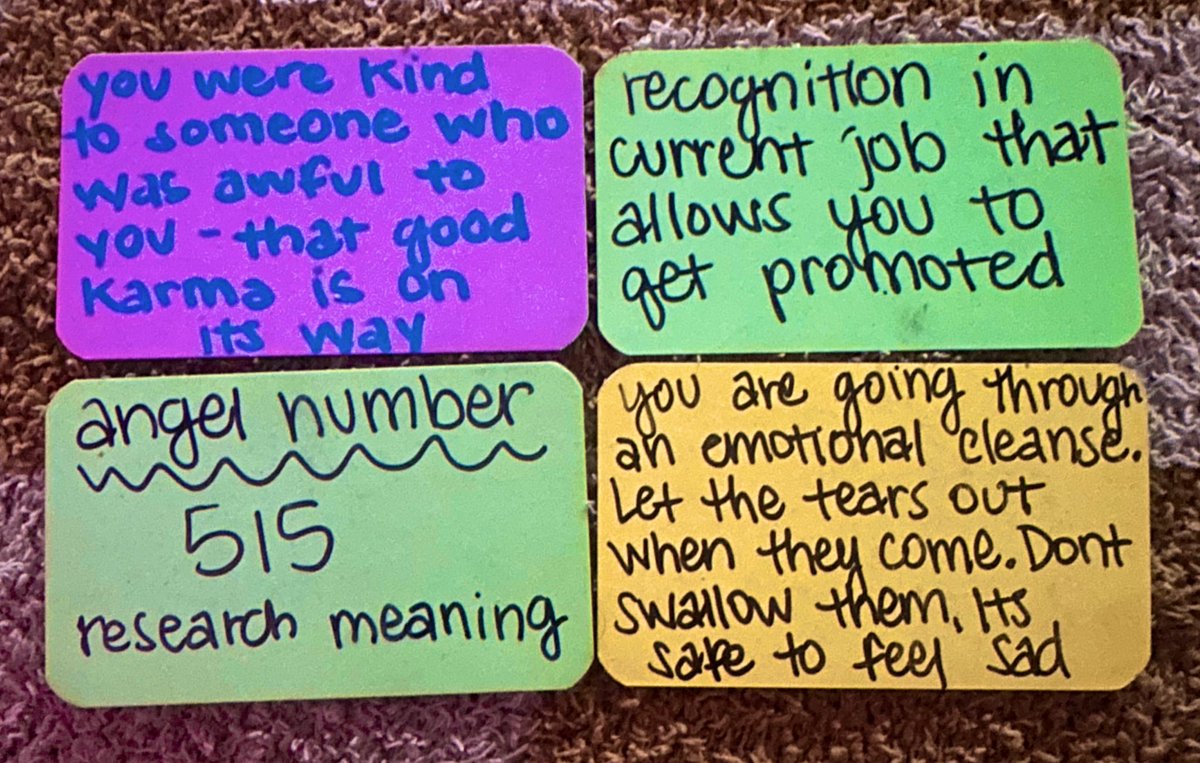 you were kind
to someone who
was awful to
you - that good
karma is on
its way
recognition in
current job that
allows you to
get promoted
angel number
515
research meaning
you are going through
an emotional cleanse.
Let the tears out
when they come. Dont
swallow them. Its
safe to feel sad